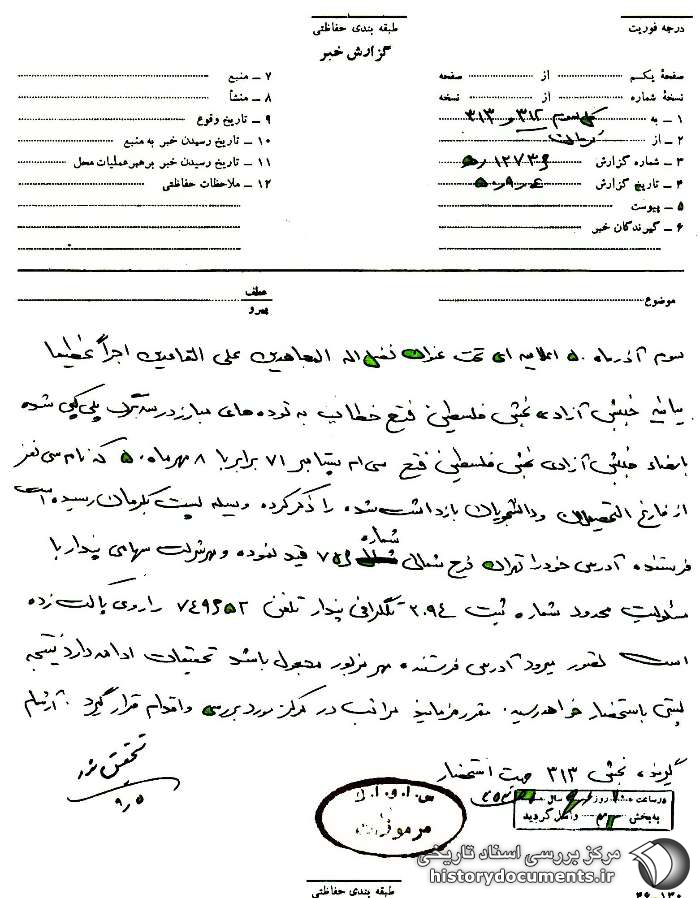 درجه فوریت
طبقه بندی حفاظتی
گزارش خبر
صفحهٔ یکم از صفحه
نسخهٔ شماره از نسخه
۱ ـ به کل سوم ۳۱۲ و ۳۱۳
۲ ـ از کرمان
۳ ـ شماره گزارش ۱۲۷۳۶/ه
۴ ـ تاریخ گزارش ۵۰/۹/۴
۵ ـ پیوست
۶ ـ گیرندگان خبر
۷ ـ منبع
۸ ـ منشأ
۹ ـ تاریخ وقوع
۱۰ ـ تاریخ رسیدن خبر به منبع
۱۱ ـ تاریخ رسیدن خبر برهبر عملیات محل
۱۲ ـ ملاحظات حفاظتی
موضوع
عطف
پیرو
سوم آذر ماه ۵۰ اعلامیه ای تحت عنوان فضل اله المجاهدین علی القاعدین اجراً عظیما
بیانیه جنبش آزادی بخش فلسطین فتح خطاب به توده های مبارز در سه برگ پلی کپی شده
بامضاء جنبش آزادی بخش فلسطین فتح سی ام سپتامبر ۷۱ برابر با ۸ مهرماه ۵۰ که نام سی نفر
از فارغ التحصیلان و دانشجویان بازداشت شده را ذکر کرده وسیله پست بکرمان رسیده است
فرستنده آدرس خود را تهران فرح شمالی شماره ۷۵۶ قید نموده و مهر شرکت سهامی پندار با
مسئولیت محدود شماره ثبت ۳۰۹۴ تلگرافی پندار تلفن ۷۴۹۶۵۲ را روی پاکت زده
است تصور میرود آدرس فرستنده مهر مزبور مجعول باشد تحقیقات ادامه دارد نتیجه
بعدی باستحضار خواهد رسید. مقرر فرمایند مراتب در مرکز مورد بررسی و اقدام قرار گیرد. آرشام
گیرنده بخش ۳۱۳ جهت استحضار
تحقیق شد
۹/۵
س.ا.و.ا.ک
درساعت روز سال
به بخش ۳۱۲ واصل گردید
طبقه بندی حفاظتی
۴۶-۱۳۰
مرکز بررسی اسناد تاریخی
historydocuments.ir